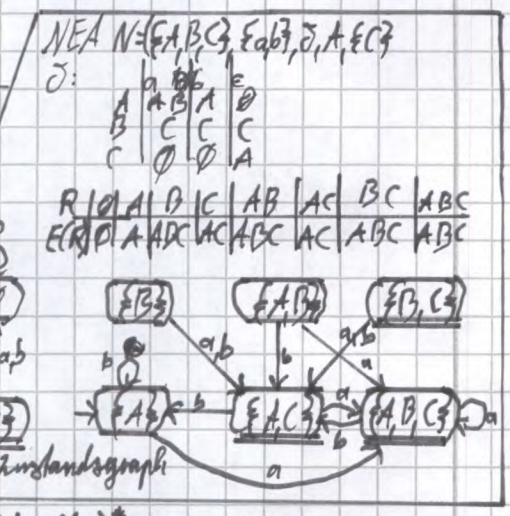 NEA N=({A,B,C},{a,b},δ,A,{C}
δ: | a | b | ε
A | AB | A | ∅
B | C | C | C
C | ∅ | ∅ | A
R | ∅ | A | B | C | AB | AC | BC | ABC
E(R) | ∅ | A | ABC | AC | ABC | AC | ABC | ABC
{B} {A,B} {B,C}
a,b a,b b a,b a
b
{A} b {A,C} a {A,B,C} a
b
Zustandsgraph a